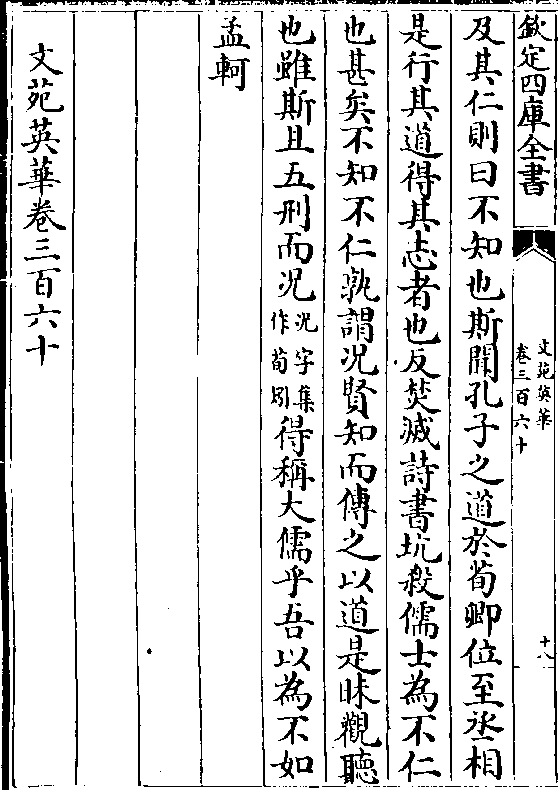 欽定四庫全書
文苑英華
卷三百六十
十八
及其仁則曰不知也斯聞孔子之道於荀卿位至丞相
是行其道得其志者也反焚滅詩書坑殺儒士為不仁
也甚矣不知不仁孰謂况賢知而傳之以道是昧觀聽
也雖斯且五刑而况况字集作荀則得稱大儒乎吾以為不如
孟軻
文苑英華卷三百六十